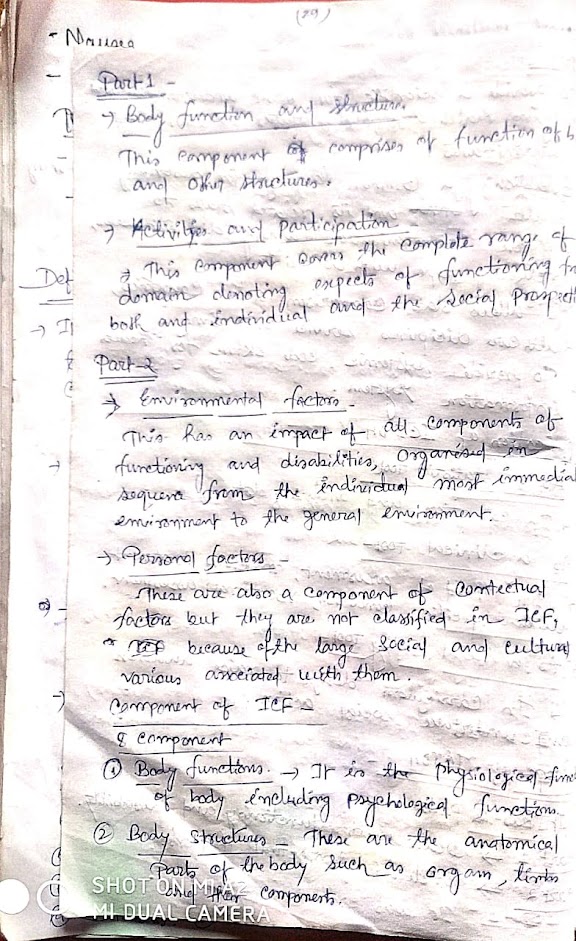 (29)
- Nausea
Part 1 -
→ Body function and structure.
This component of comprises of function of b
and other structures.
→ Activities and participation
→ This component covers the complete range of
domain denoting aspects of functioning
Def
both and individual and the social
→ I
Part-2
→ Environmental factors -
This has an impact of all components of
functioning and disabilities, organised in
sequence from the individual most immedia
environment to the general environment.
→ Personal factors -
These are also a component of contectual
factors but they are not classified in ICF,
because of the large social and cultural
various associated with them.
Component of ICF -
component
① Body functions. → It is the physiological func
of body including psychological functions.
② Body structures - These are the anatomical
parts of the body such as organ, limbs
and their components.
SHOT ON MI A2
MI DUAL CAMERA